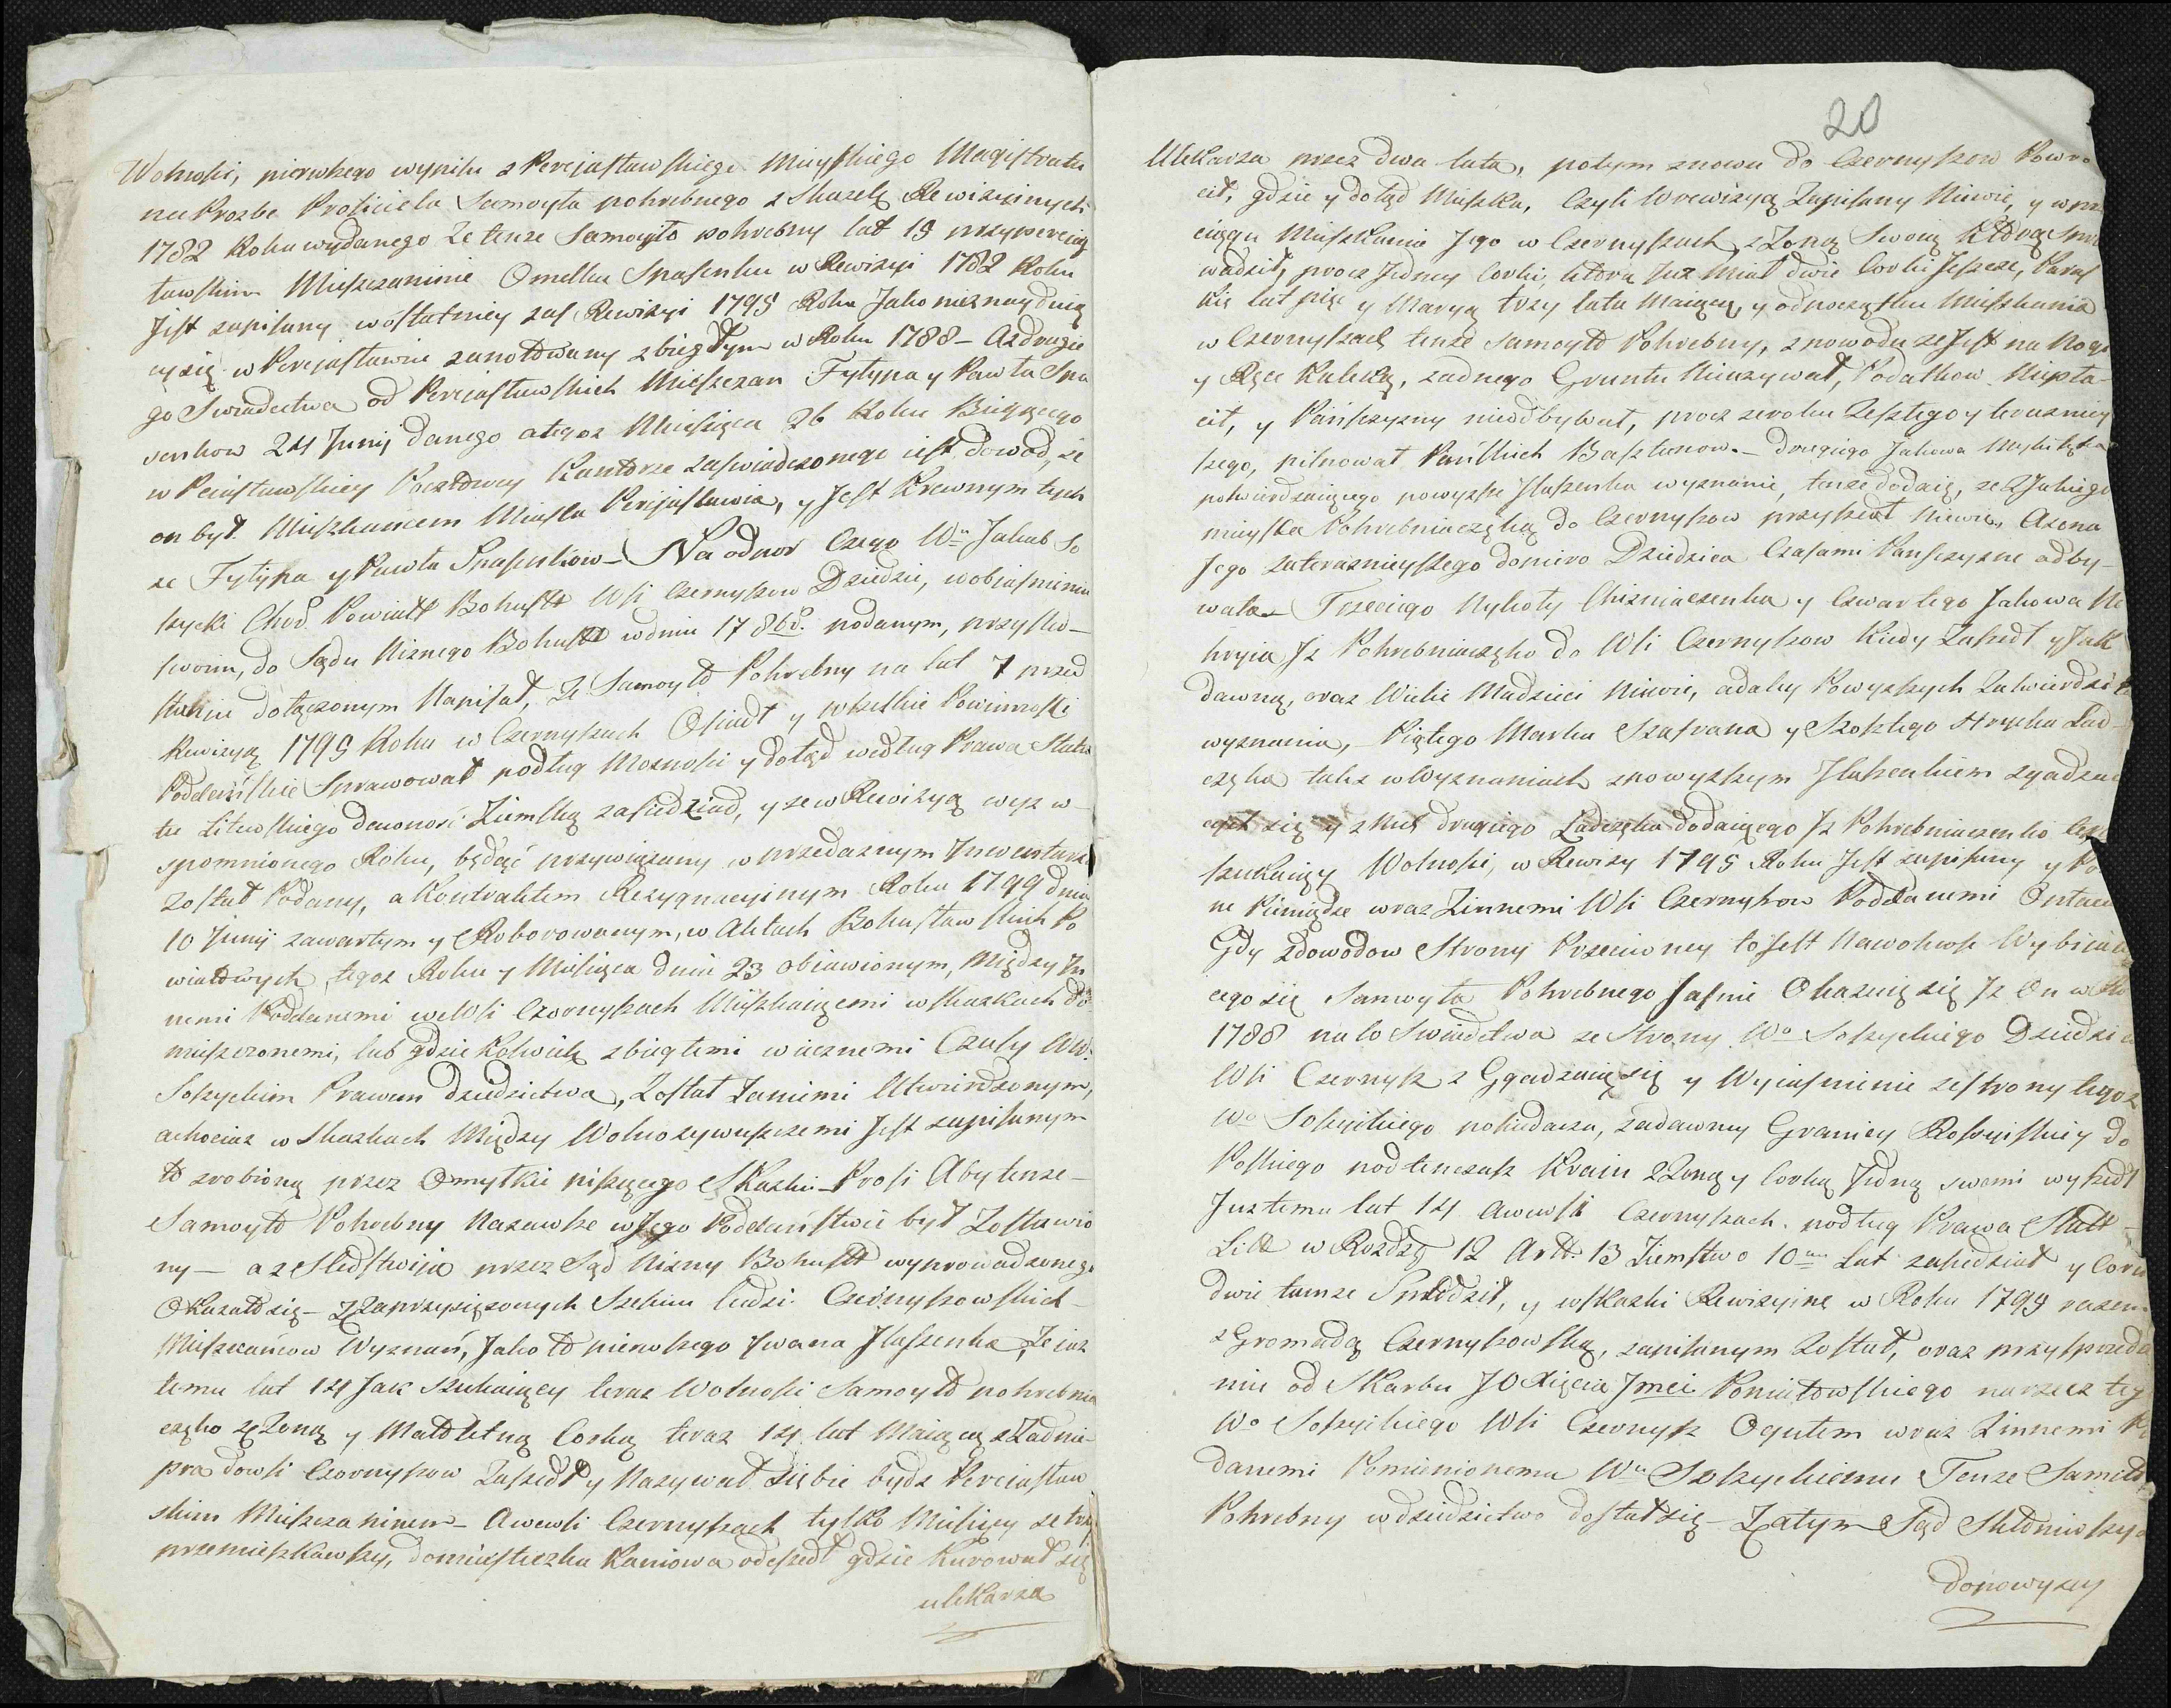 Wolności, pierwszego wypisu z Perejasławskiego Mieyskiego Magistratu
na Prozbe Prosiciela Samoyła pohrebnego z Skazek Rewizyinych
1782 Roku wydanego Ze tenze Samoyło pohrebny lat 19 przy pereia
sławskim Mieszczaninie Omelku Spasenku w Rewizyi 1782 Roku
Jest zapisany w ostatniey zaś Rewizyi 1795 Roku Jako nieznayduią
cy się w Perejasławiu zanotowany zbiegłym w Roku 1788 – Az drugie
go Swiadectwa od Perejasławskich Mieszczan Fytypa y Pawła Spa
senkow 24 Junij danego a tegoz Miesiąca 26 Roku Biezącego
w Peiasławskiey Poczdowey Kantorze zaswiadczonego iest dowod, ze
on był Mieszkancem Miasta Perejasławia, y Jest Krewnym tych
ze Fytypa y Pawła Spasenkow – Na odpor Czego Wn Jakub So
szycki Chor. Powiatt Bohustt Wsi Czernyszow Dziedzic, w obiasnieniu
swoim, do Sądu Niznego Bohustt w dniu 17 8bd. podanym, przy sled-
stwiu dołączonym Napisał, Ze Samoyło Pohrebny na lat 7 przed
Rewizyą 1795 Roku w Czernyszach Osiadł y wszelkie Powinnosti
Poddańskie Sprawował podług Moznosti y dotąd według Prawa Statu
tu Litewskiego dawnosć Ziemską zasiedział, y ze w Rewizyą wyz w-
spomnionego Roku, będąć przywiązany w przedaznym Inwentarzu
został Podany, a Kontraktem Rezygnacyinym Roku 1799 dnia
10 Junij zawartym y Roborowanym, w Aktach Bohusławskich Po
wiatowych, tegoz Roku y Miesiąca dnia 23 obiawionym, Między In
nemi Poddanemi we Wsi Czornyszach Mieszkaiącemi w skazkach do
mieszczonemi, lub gdzie kolwiek zbiegłemi wiecznemi Czasy WW.
Soszyckim Prawem dziedzictwa, Został Zaniemi Utwierdzonym,
achociaz w Skazkach Między Wolnozywuszczemi Jest zapisanym
to zrobiono przez Omyłkie piszącego Skazki – Prosi Aby tenze –
Samoyło Pohrebny Nazawsze w Jego Poddaństwie był Zostawio
ny – a z Sledstwija przez Sąd Nizny Bohustt wyprowadzonego
Okazało się – Z Zaprzysięzonych Szesciu ludzi Czernyszowskich –
Mieszkańcow Wyznań, Jako to pierwszego Iwana Ilaszenka, Ze iuz
temu lat 14 Jak Szukaiący teraz Wolnosti Samoyło pohrebnia
częko ze Zoną y Małoletną Corką teraz 14 lat Maiącą z Zadnie-
pra do wsi Czornyszow Zaszedł y Nazywał siębie bydz Perejasław
skim Mieszczaninem – A we wsi Czernyszach tylko Miesięcy ze trzy
przemieszkawszy, do miasteczka Kaniowa odeszedł gdzie Kurował się
u lekarza
20
U lekarza przez dwa lata, potym znowu do Czernyszow Powro
cił, gdzie y dotąd Mieszka, Czyli w rewizyą Zapisany Niewie, y w prze
ciągu Mieszkania Jego w Czernyszach, z Zoną Swoią Ktorą Spro
wadził, procz Jedney Corki, ktora Juz Miał dwie Corki Jeszcze, Paras
kię lat pięc y Maryą trzy lata Maiącą, y od początku Mieszkania
w Czernyszach tenze Samoyło Pohrebny, z powodu ze Jest na Nogę
y Ręce Kaleką, zadnego Gruntu Nieuzywał, Podatkow Niepła-
cił, y Pańszczyzny nieodbywał, procz ze roku Zeszłego y terazniey
szego, pilnował Pańskich Basztanow. – drugiego Jakowa
potwierdzaiącego powyzsze Ilaszenka wyznanie, tenze dodaie, ze z Jakiego
mieysca Pohrebniaczęko do Czernyszow przyszedł Niewie, A zona
Jego zaterazniejszego dopiero Dziedzica Czasami Panszczyzne odby-
wała – Trzeciego Nykoty Chizniaczenka y Czwartego Jakowa
Iz Pohrebniaczęko do Wsi Czernyszow Kiedy Zaszedł y Jak
dawno, oraz Wiele Madzieci Niewie, a daley Powyzszych Zatwierdził
wyznania, – Piątego Marka Szafrana y Szostego Hrycka Lad-
częka takz w Wyznaniach z powyzszym Ilaszenkiem zgadzaią
cych się y z Nich drugiego Ladczęka dodaiącego Iz Pohrebniaczenko
szukaiący Wolnosti, w Rewizy 1795 Roku Jest zapisany y
ne Pieniądze wraz Zinnemi Wsi Czernyszow Poddanemi
Gdy z dowodow Strony Przeciwney to Jest Nawolnosć Wybiiaią
cego się Samoyła Pohrebnego Jasnie Okazuie się Iz On w Ro
1788 na to Swiadectwa ze Strony Wo Soszyckiego Dziedzica
Wsi Czernysz z Ggadzaią się y Wyiasnienie ze strony tegoz
Wo Soszyckiego pokadacza, ze dawney Granicy Rossyiskiey do
Polskiego pod tenczas Kraiu z Zoną y Corką Jedną swemi wyszedł
Juz temu lat 14 a we wsi Czernyszach. podług Prawa Statt –
Litt w Rozdz. 12 Artt. 13 Ziemstwo 10 Lat zasiedział y Corki
dwie tamze Spłodził, y w Skazki Rewizyine w Roku 1795 razem
z Gromadą Czernyszowską, zapisanym Został, oraz przy sprzeda
niu od Skarbu JO Xięcia Jmci Poniatowskiego na rzecz teg
Wo Soszyckiego Wsi Czernysz Ogułem wraz Zinnemi
danemi Pomienionemu Wu Soszyckiemu Tenze Samoyło
Pohrebny w dziedzictwo dostał się – Zatym Sąd Skłoniwszy
do powyzey